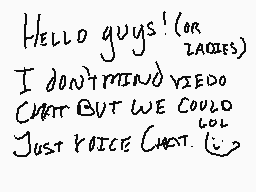 HELLO guys! (OR LADIES)
I DON'T MIND VIEDO
CHAT BUT WE COULD
JUST VOICE CHAT. LOL